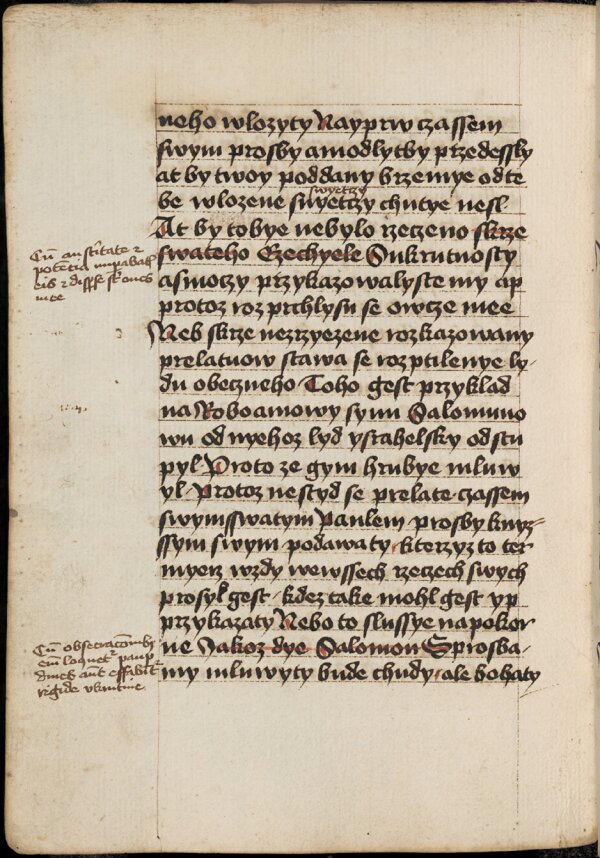 neho wlozyty Nayprw czassem
swym prosby amodlytby przedessly
at by twoy poddany brzemye odte
swyetczy
be wlozene swyetczy chutye nesl
At by tobye nebylo rzeczeno skrze
swateho Ezechyele Sukrutnosty
asmoczy przykazowalyste my ap
protoz roz prchlysu se owcze mee
Neb skrze nezrzyezene rozkazowany
prelatuow stawa se rozptilenye ly-
du obeczneho Toho gest przyklad
na Roboamowy synu Salomuno
wu od nyehoz lyd ysrahelsky odstu
pyl Proto ze gym hrubye mluw
yl Protoz nestyd se prelate czassem
swym sswatym Paulem prosby knyz-
ssym swym podawaty kterzyz to ter
myenz wzdy wewssech rzeczech swych
prosyl gest kdez take mohl gest yp
przykazaty Nebo to slussye napokor
ne Jakoz dye Salomon Sprosba-
my mluwyty bude chudy ale bohaty
Cum austeritate et
potentia
mee
Cum obsecrationibus
loquetur pauper
dives autem effabitur
rigide